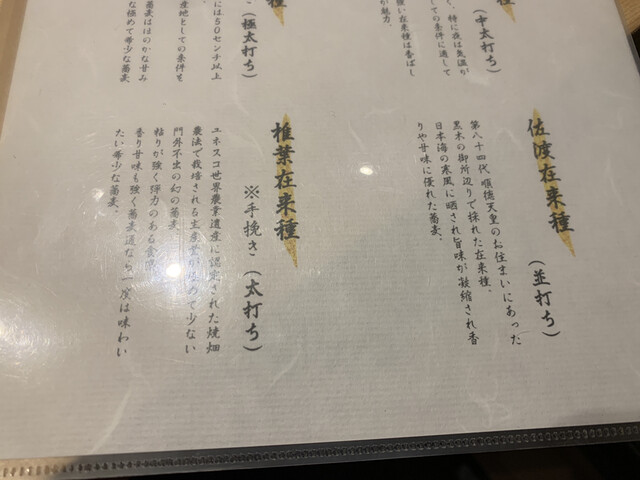 種
（中太打ち）
く、特に夜は気温が
しての条件に適して
強い在来種は香ばし
が魅力。
種
き（極太打ち）
には50センチ以上
産地としての条件を
蕎麦はほのかな甘み
な極めて希少な蕎麦
佐渡在来種
（並打ち）
第八十四代 順徳天皇のお住まいにあった
黒木の御所辺りで採れた在来種。
日本海の寒風に晒され旨味が凝縮され香
りや甘味に優れた蕎麦。
椎葉在来種
※手挽き（太打ち）
ユネスコ世界農業遺産に認定された焼畑
農法で栽培される生産量が極めて少ない
門外不出の幻の蕎麦。
粘りが強く弾力のある食感
香り甘味も強く蕎麦通なら一度は味わい
たい希少な蕎麦。